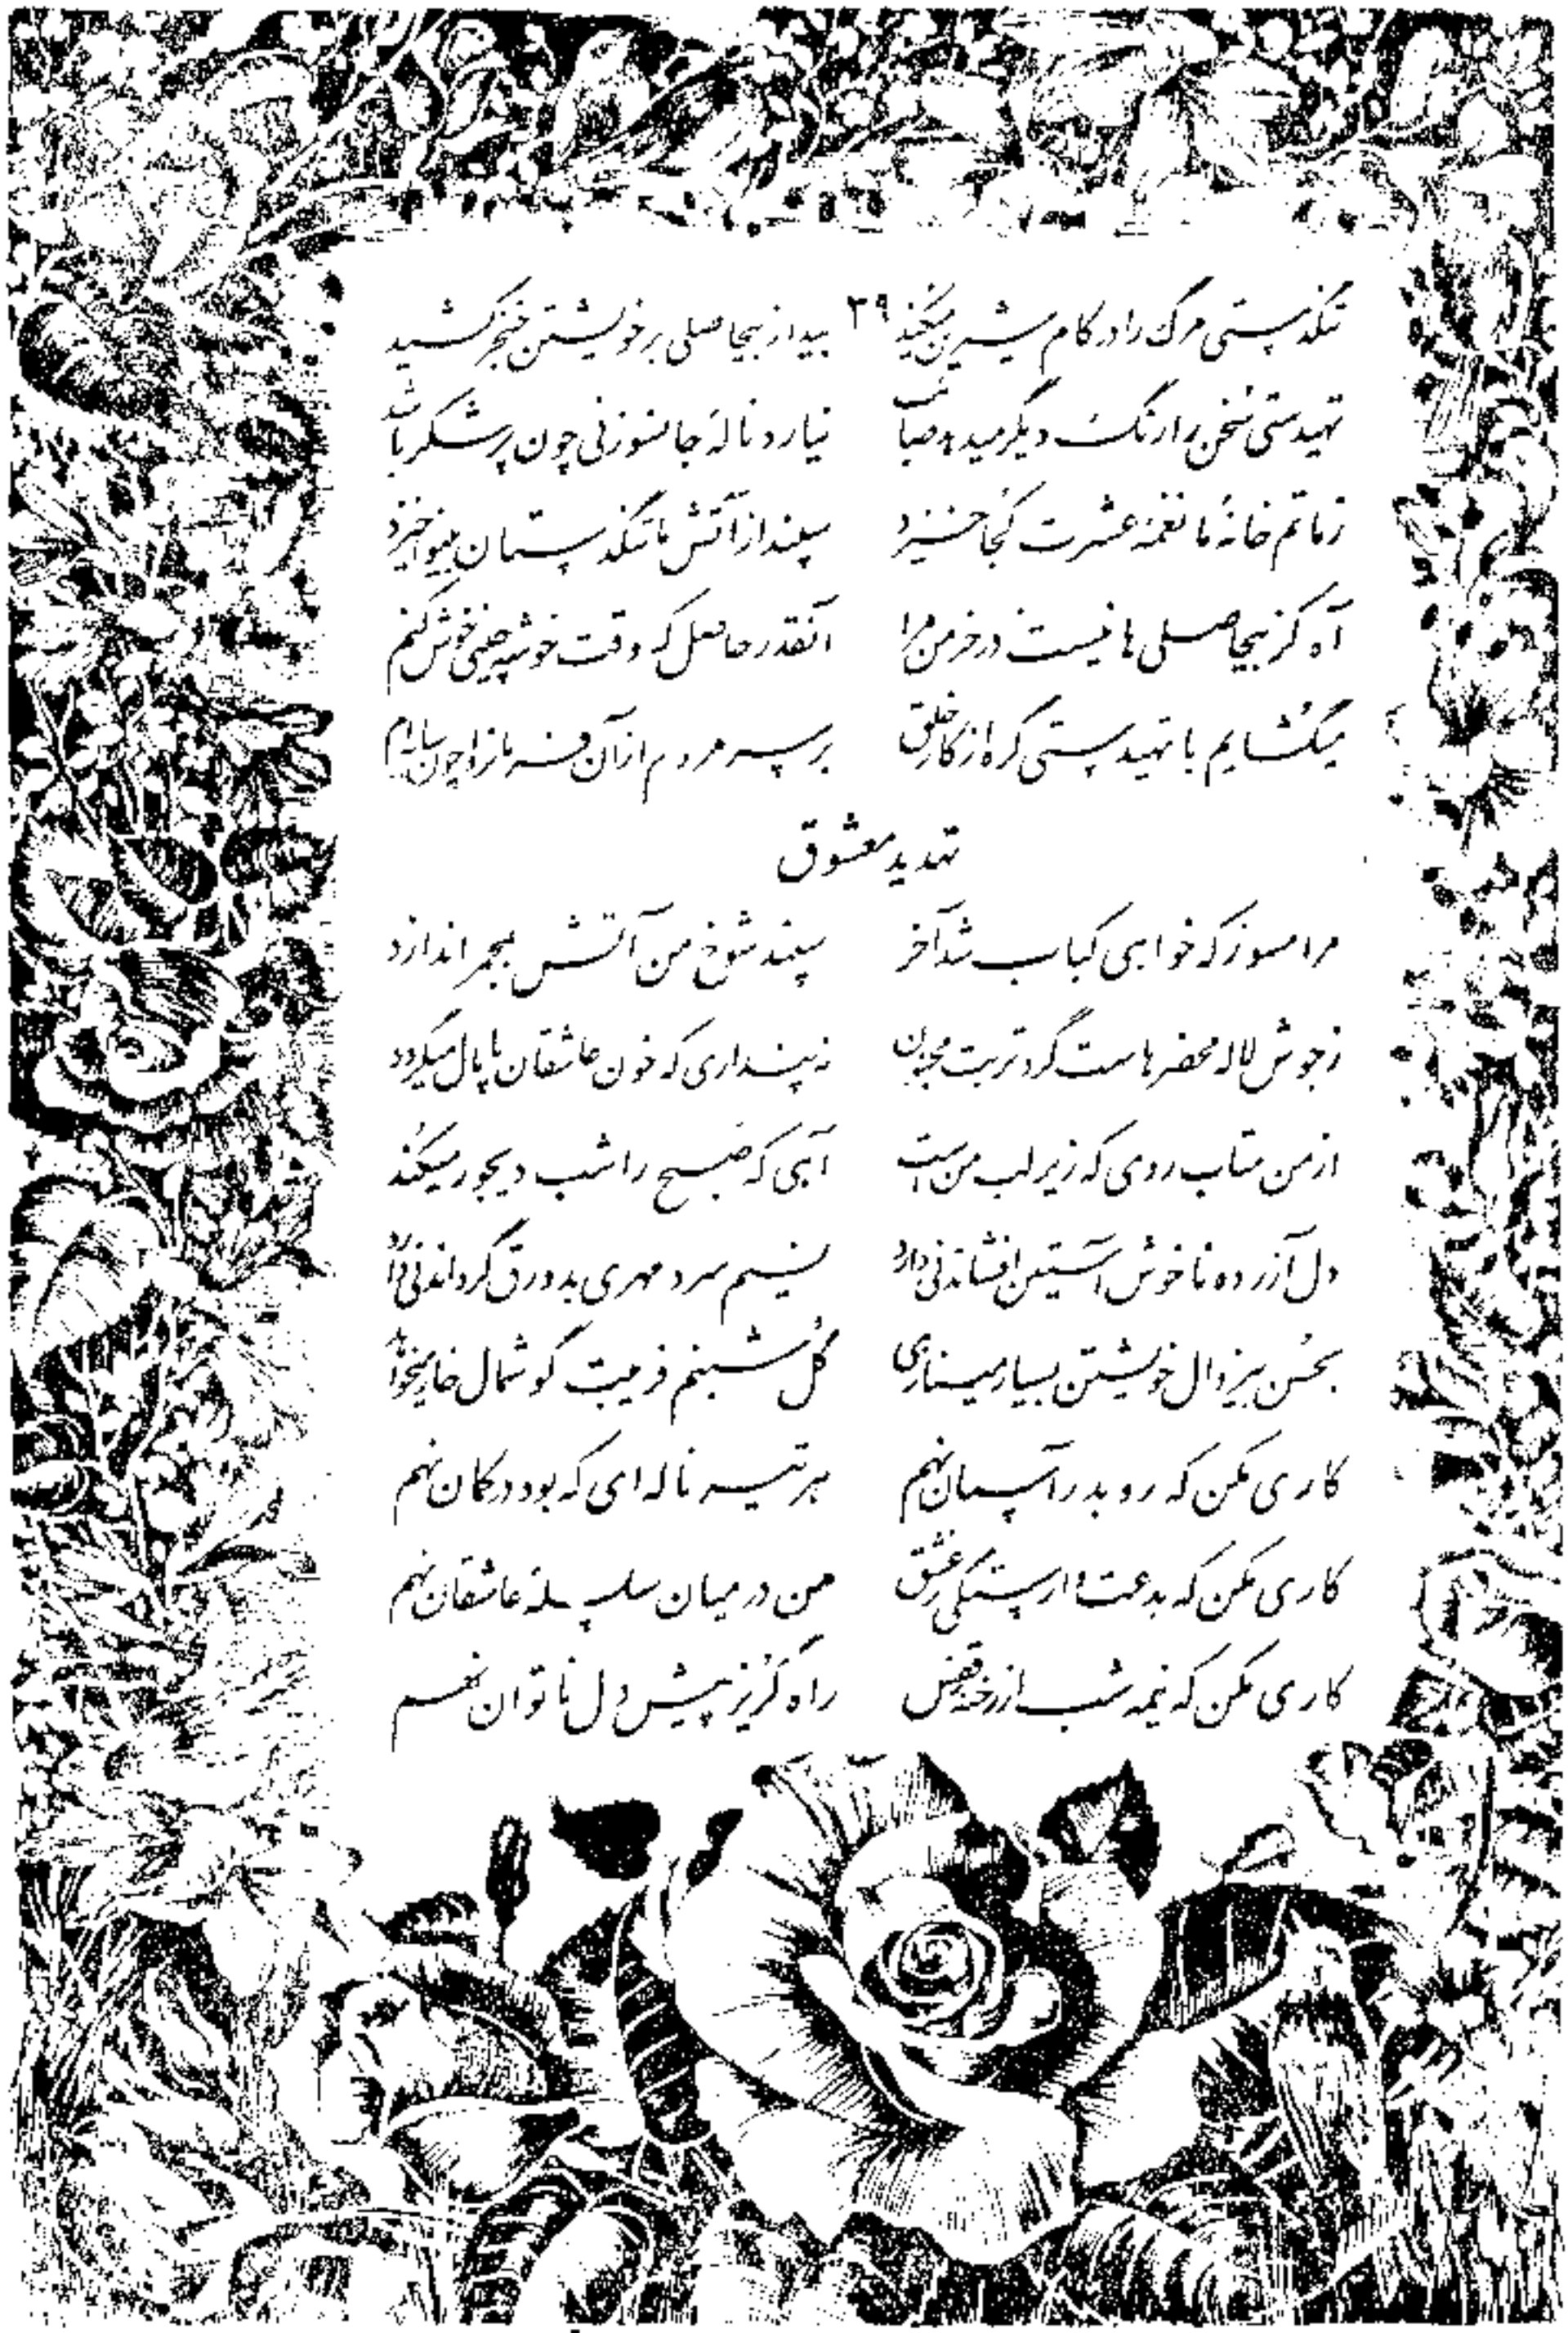 تنگدستی مرگ را در کام شیرین میکند ۳۹ بید از بیحاصلی بر خویشتن خنجر کشید
تهیدستی سخن را رنگ دیگر میدهد صائب نیارد ناله جانسوز نی چون پر شکر باشد
ز ماتم خانهٔ ما نغمهٔ عشرت کجا خیزد سپند از آتش ما تنگدستان بینوا خیزد
آه کز بیحاصلی ها نیست در خرمن مرا آنقدر حاصل که وقت خوشه چینی خوش کنم
میگشایم با تهیدستی گره از کار خلق بر سر مردم از آن فرمانروا چون شانه ام
تهدید معشوق
مرا مسوز که خواهی کباب شد آخر سپند شوخ من آتش بمجمر اندازد
ز جوش لاله محضرهاست گرد تربت مجنون نه پنداری که خون عاشقان پامال میگردد
از من متاب روی که زیر لب من است آهی که صبح را شب دیجور میکند
دل آزرده ما خوش آستین افشاندنی دارد نسیم سرد مهری بد ورق گرداندنی دارد
بحسن بیزوال خویشتن بسیار مینازی گل شبنم فریبت گوشمال خار میخواهد
کاری مکن که رو بدر آسمان نهم هر تیر ناله ای که بود در کمان نهم
کاری مکن که بدعت وارستگی ز عشق من در میان سلسلهٔ عاشقان نهم
کاری مکن که نیمه شب از رخنهٔ قفس راه گریز پیش دل ناتوان نهم